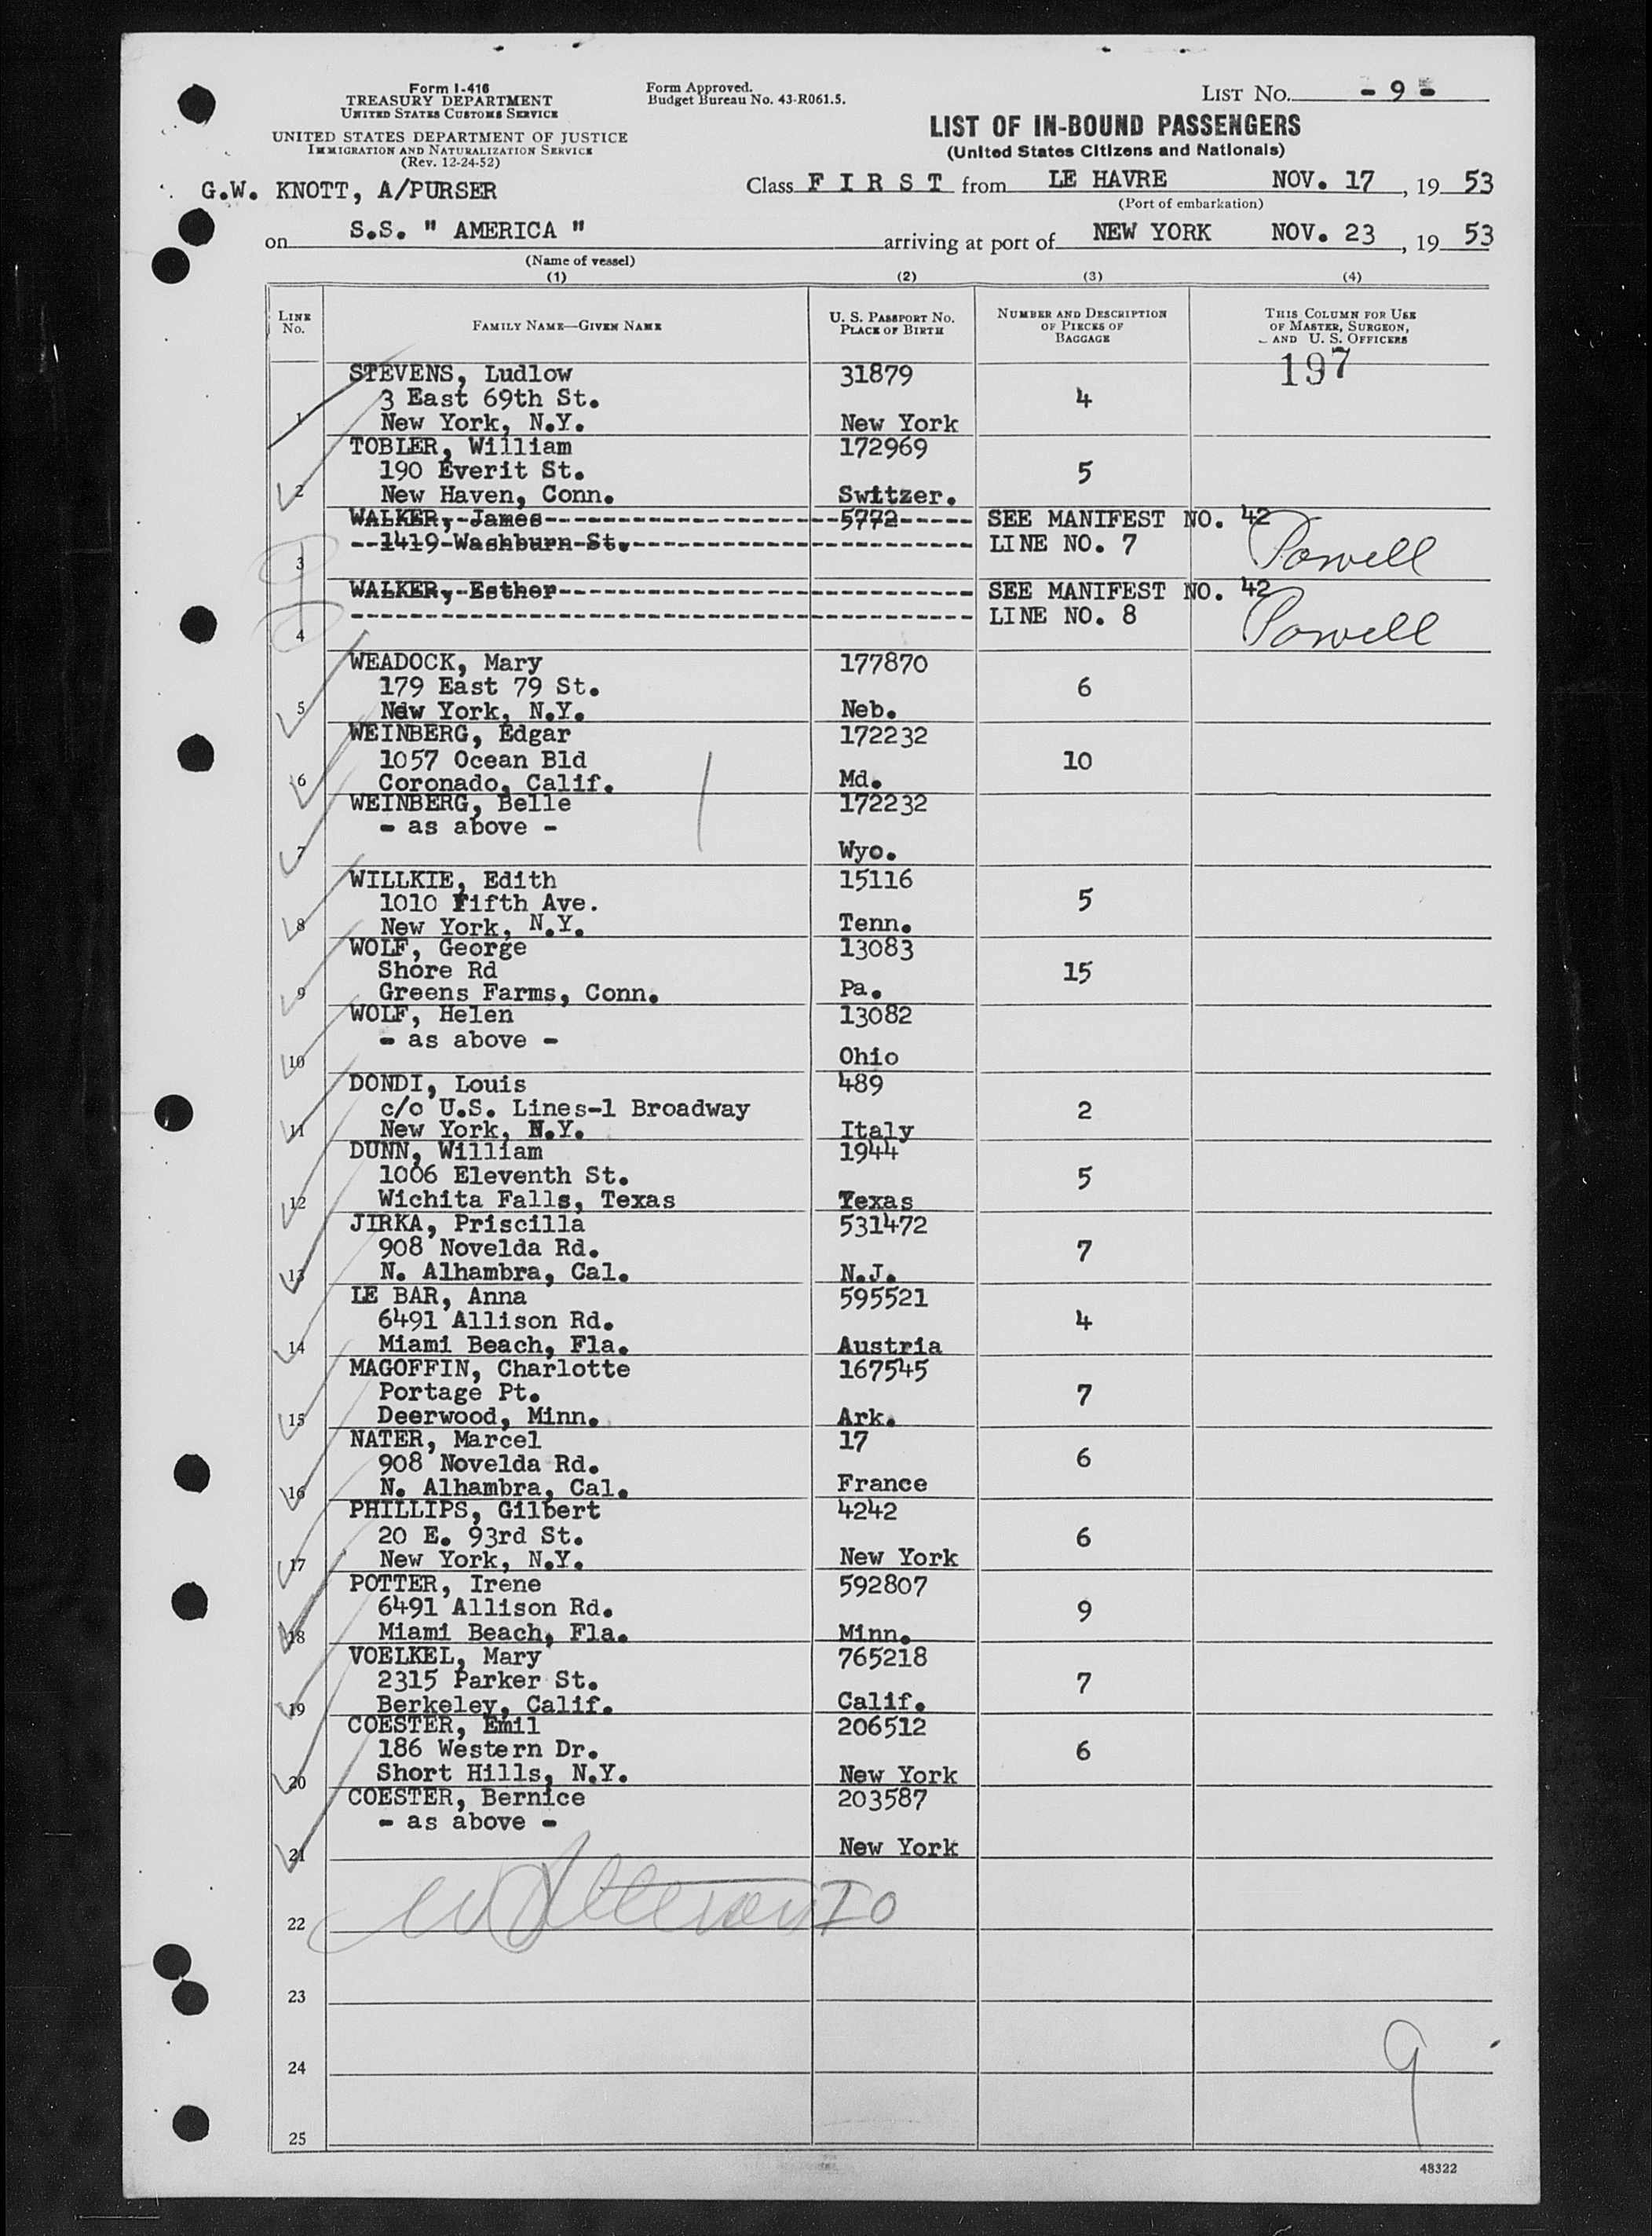 Form I-416
TREASURY DEPARTMENT
UNITED STATES CUSTOMS SERVICE
UNITED STATES DEPARTMENT OF JUSTICE
IMMIGRATION AND NATURALIZATION SERVICE
(Rev. 12-24-52)
Form Approved.
Budget Bureau No. 43-R061.5.
LIST NO. - 9 -
LIST OF IN-BOUND PASSENGERS
(United States Citizens and Nationals)
G.W. KNOTT, A/PURSER
Class F I R S T from LE HAVRE NOV. 17, 19 53
(Port of embarkation)
on S.S. " AMERICA " arriving at port of NEW YORK NOV. 23, 19 53
(Name of vessel)
(1) (2) (3) (4)
LINE NO.
FAMILY NAME—GIVEN NAME
U. S. PASSPORT NO.
PLACE OF BIRTH
NUMBER AND DESCRIPTION
OF PIECES OF
BAGGAGE
THIS COLUMN FOR USE
OF MASTER, SURGEON,
AND U. S. OFFICERS
197
STEVENS, Ludlow 31879
3 East 69th St. 4
1 New York, N.Y. New York
TOBLER, William 172969
190 Everit St. 5
2 New Haven, Conn. Switzer.
WALKER, James 5772 SEE MANIFEST NO. 42
1419 Washburn St. LINE NO. 7 Powell
3
WALKER, Esther SEE MANIFEST NO. 42
LINE NO. 8 Powell
4
WEADOCK, Mary 177870
179 East 79 St. 6
5 New York, N.Y. Neb.
WEINBERG, Edgar 172232
1057 Ocean Bld 10
6 Coronado, Calif. Md.
WEINBERG, Belle 172232
- as above -
7 Wyo.
WILLKIE, Edith 15116
1010 Fifth Ave. 5
8 New York, N.Y. Tenn.
WOLF, George 13083
Shore Rd 15
9 Greens Farms, Conn. Pa.
WOLF, Helen 13082
- as above -
10 Ohio
DONDI, Louis 489
c/o U.S. Lines-1 Broadway 2
11 New York, N.Y. Italy
DUNN, William 1944
1006 Eleventh St. 5
12 Wichita Falls, Texas Texas
JIRKA, Priscilla 531472
908 Novelda Rd. 7
13 N. Alhambra, Cal. N.J.
LE BAR, Anna 595521
6491 Allison Rd. 4
14 Miami Beach, Fla. Austria
MAGOFFIN, Charlotte 167545
Portage Pt. 7
15 Deerwood, Minn. Ark.
NATER, Marcel 17
908 Novelda Rd. 6
16 N. Alhambra, Cal. France
PHILLIPS, Gilbert 4242
20 E. 93rd St. 6
17 New York, N.Y. New York
POTTER, Irene 592807
6491 Allison Rd. 9
18 Miami Beach, Fla. Minn.
VOELKEL, Mary 765218
2315 Parker St. 7
19 Berkeley, Calif. Calif.
COESTER, Emil 206512
186 Western Dr. 6
20 Short Hills, N.Y. New York
COESTER, Bernice 203587
- as above -
21 New York
22
23
24
9
25
48322